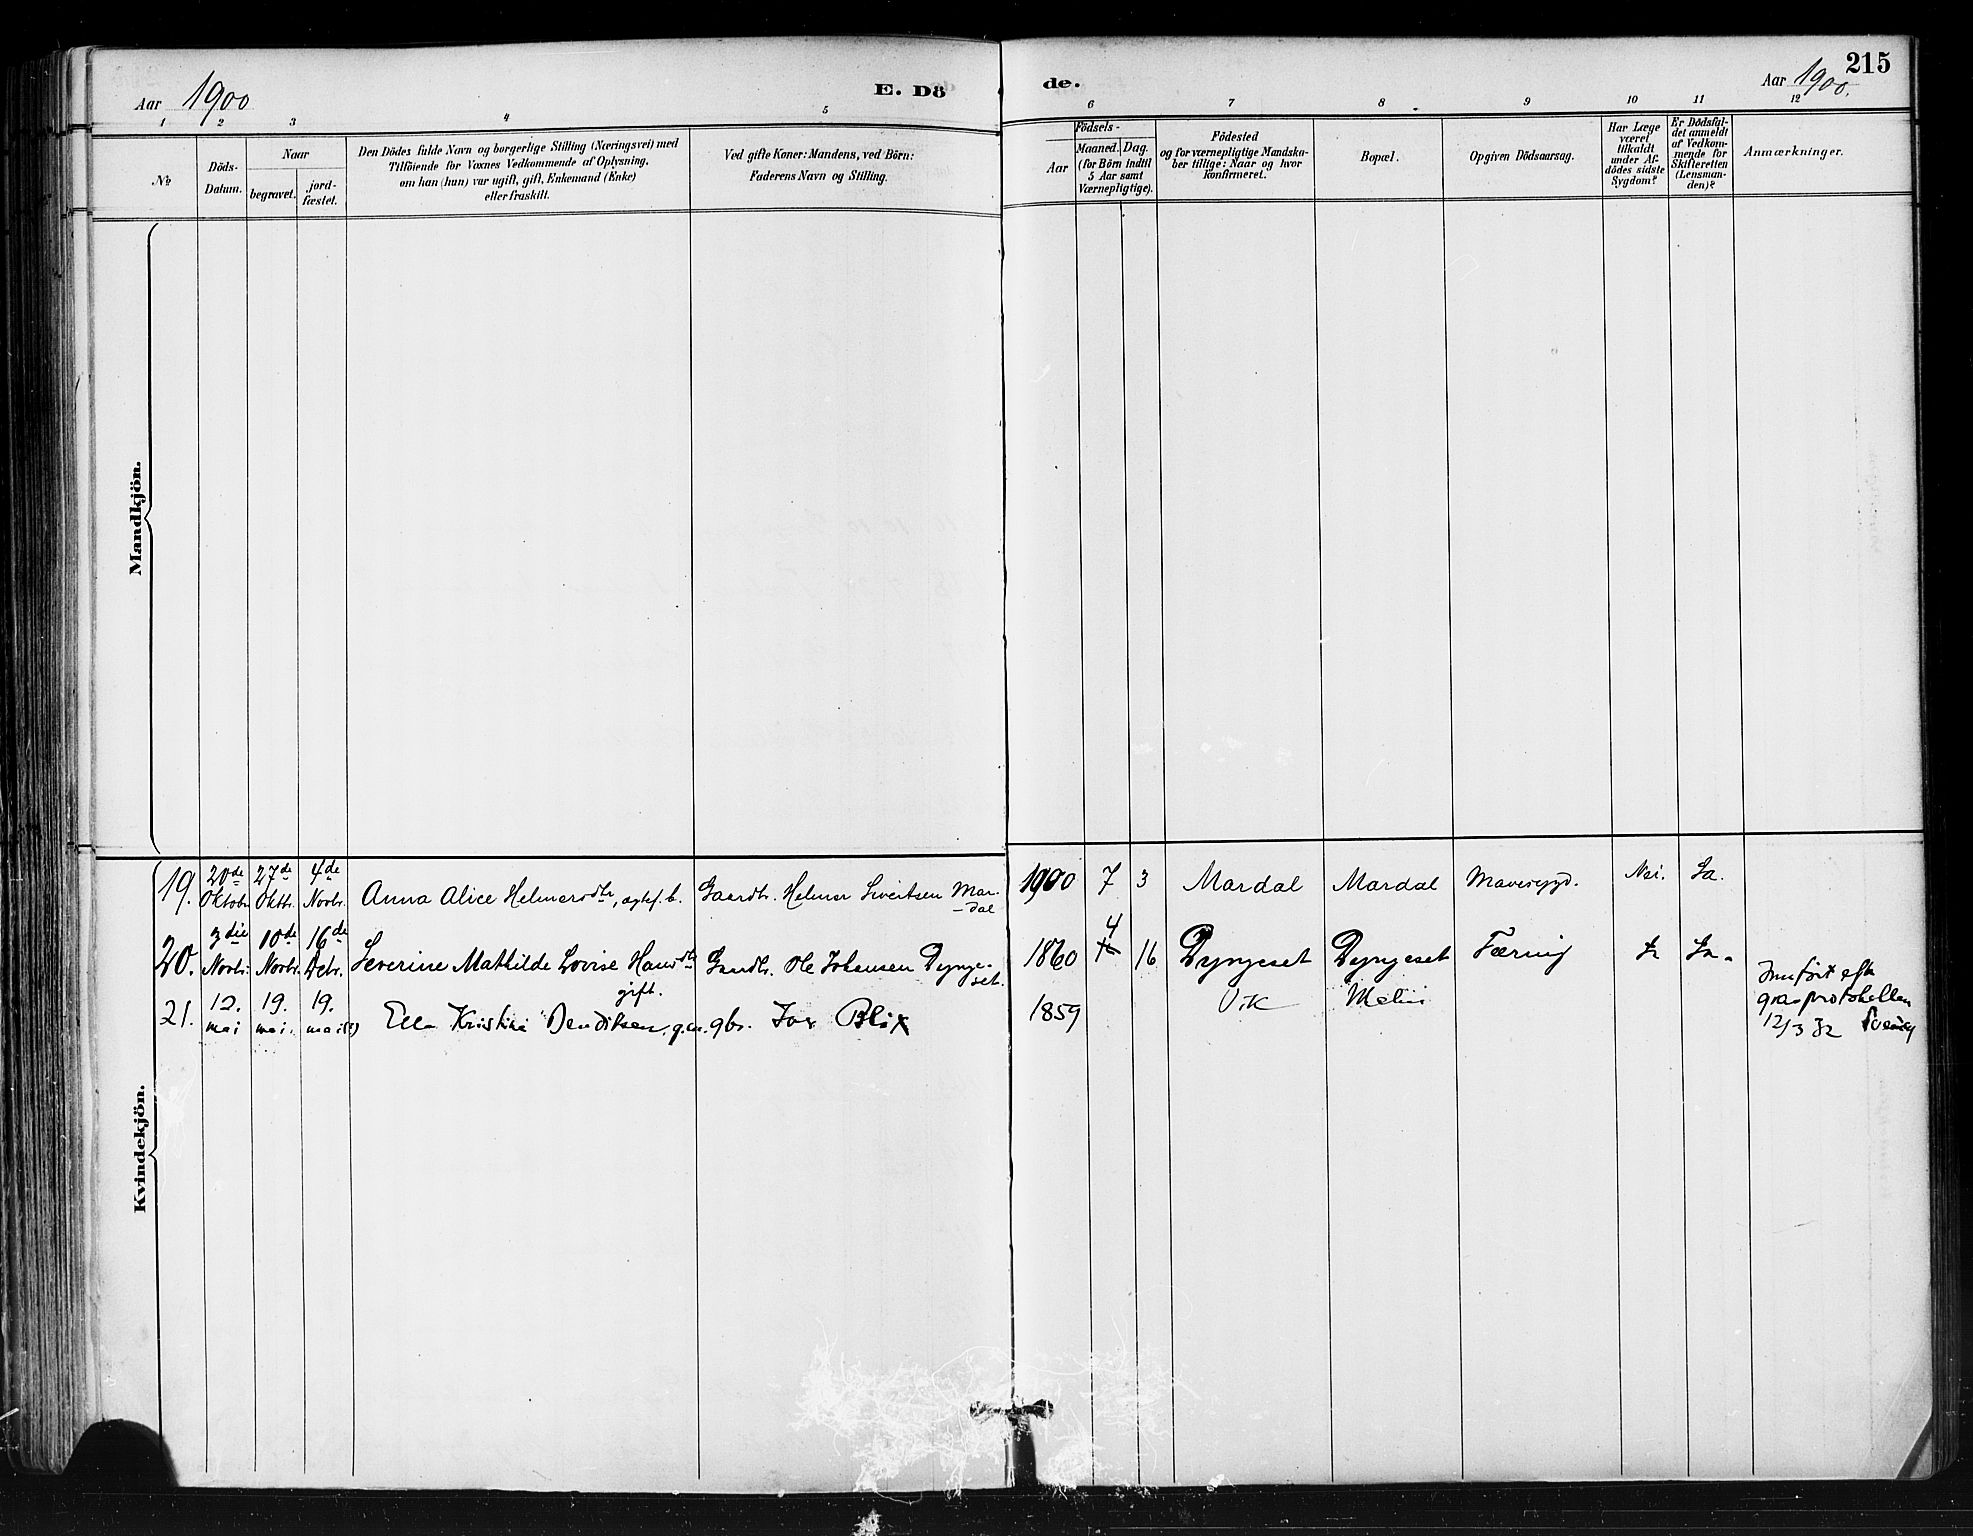 Aar 1900
E. Dö
de.
Aar 1900.
215
1 2 3 4 5 6 7 8 9 10 11 12
No
Döds-
Datum.
Naar
begravet.
jord-
fæstet.
Den Dödes fulde Navn og borgerlige Stilling (Næringsvei) med
Tilföiende for Voxnes Vedkommende af Oplysning,
om han (hun) var ugift, gift, Enkemand (Enke)
eller fraskilt.
Ved gifte Koner: Mandens, ved Börn:
Faderens Navn og Stilling.
Födsels-
Aar
Maaned. Dag.
(for Börn indtil
5 Aar samt
Værnepligtige).
Födested
og for værnepligtige Mandska-
ber tillige: Naar og hvor
konfirmeret.
Bopæl.
Opgiven Dödsaarsag.
Har Læge
været
tilkaldt
under Af-
dödes sidste
Sygdom?
Er Dödsfal-
det anmeldt
af Vedkom-
mende for
Skifteretten
(Lensman-
den)?
Anmærkninger.
Mandkjön.
Kvindekjön.
19. 20de Oktobr. 27de Oktbr. 4de Novbr. Anna Alice Helmersdtr, ægtef. b. Gaardbr. Helmer Sivertsen Mar-
dal 1900 7 3 Mardal Mardal Mavesygd. Nei. Ja.
20. 3die Novbr. 10de Novbr. 16de Debr. Severine Mathilde Lovise Hansdtr
gift. Gaardbr. Ole Johansen Dynge-
set. 1860 4 16 Dyngeset Dyngeset Tæring Ja.
21. 12. mai 19. mai. 19. mai Kristine gbr. Blix 1859 Vik
Innført efter
gravprotokollen
12/3 32